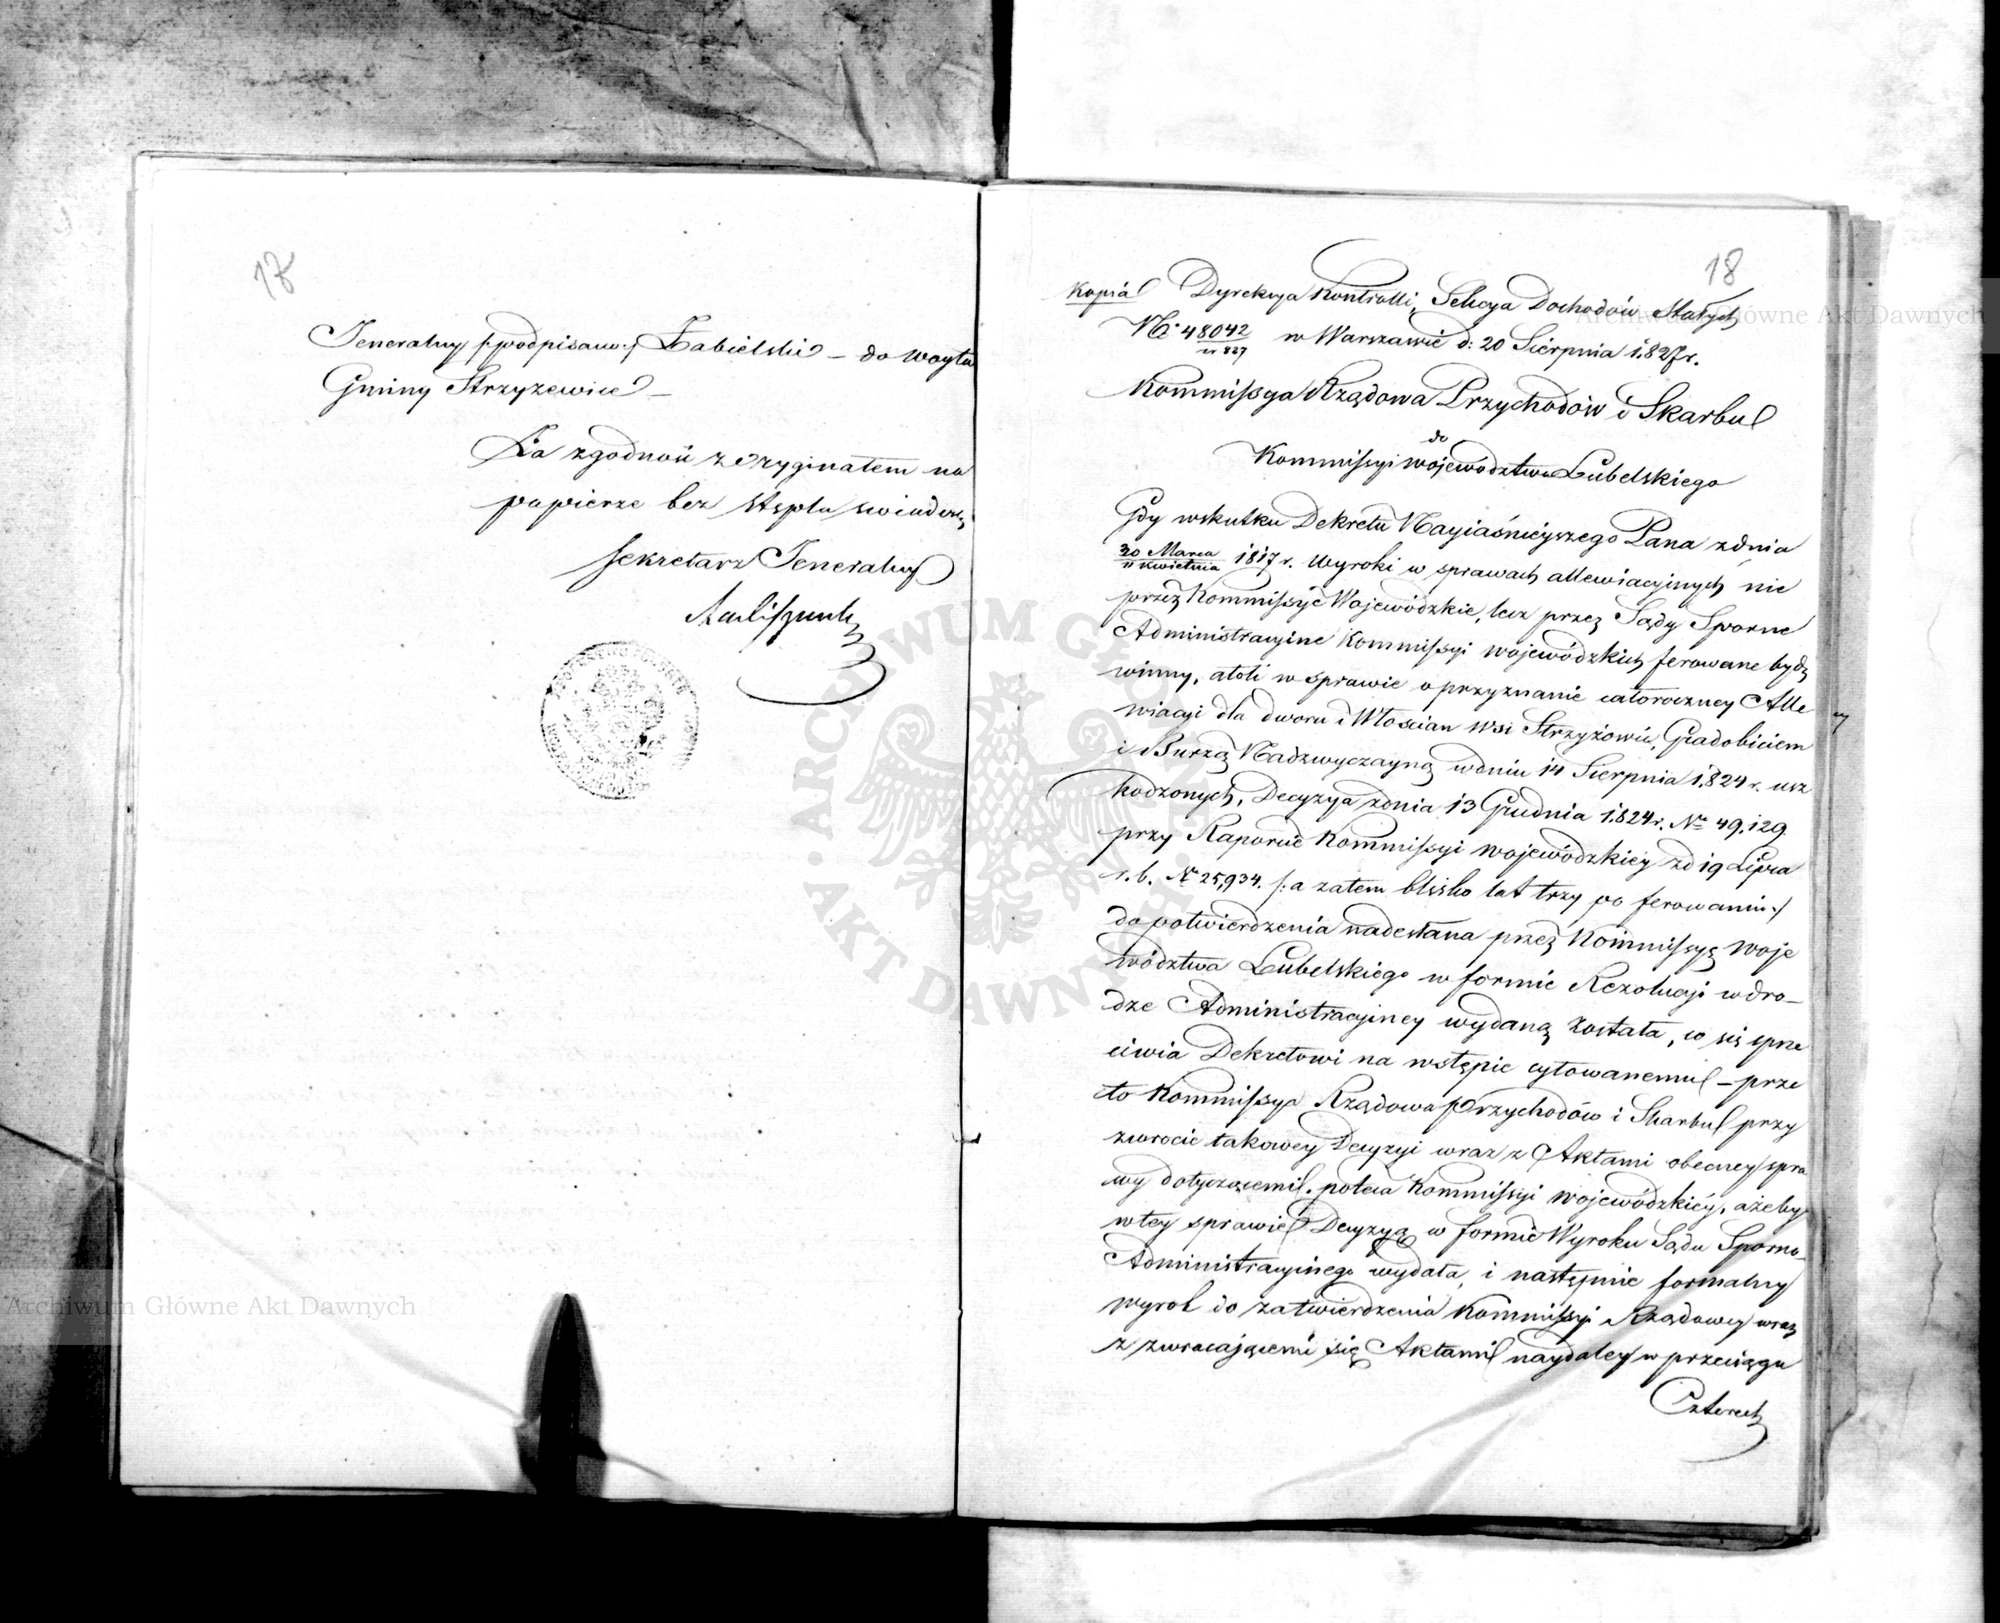 17
Jeneralny /:podpisano:/ Zabielski – do Woyta
Gminy Strzyżewice –
Za zgodność z oryginałem na
papierze bez stępla świadczy
Sekretarz Jeneralny
18
Kopia Dyrekcya Kontrolli, Sekcya Dochodów Stałych
No 48042 w Warszawie d: 20 Sierpnia 1.827 r.
Kommissya Rządowa Przychodów i Skarbu
do
Kommissyi Województwa Lubelskiego
Gdy wskutku Dekretu Nayiaśnieyszego Pana zdnia
30 Marca / 11 Kwietnia 1817 r. Wyroki w sprawach allewiacyinych nie
przez Kommissye Wojewódzkie, lecz przez Sądy Sporne
Administracyine Kommissyi wojewódzkich ferowane bydź
winny, atoli w sprawie o przyznanie całoroczney Alle
wiacyi dla dworu i Włościan Wsi Strzyżowic, Gradobiciem
i Burzą Nadzwyczayną wdniu 14 Sierpnia 1.824 r. usz
kodzonych, Decyzya zdnia 13 Grudnia 1.824 r. No 49,129
przy Raporcie Kommissyi wojewódzkiey zd 19 Lipca
r. b. No 25,934. /: a zatem blisko lat trzy po ferowaniu :/
do potwierdzenia nadesłana przez Kommissyę Woje
wództwa Lubelskiego w formie Rezolucyi w dro–
dze Administracyiney wydaną została, co się sprze
ciwia Dekretowi na wstępie cytowanemu – prze
to Kommissya Rządowa Przychodów i Skarbu przy
zwrocie takowey Decyzyi wraz z Aktami obecney spra
wy dotyczącemi. poleca Kommissyi wojewódzkiéy, ażeby
wtey sprawie Decyzyą w formie Wyroku Sądu Sporno–
Administracyinego wydała, i następnie formalny
wyrok do zatwierdzenia Kommissyi Rządowey wraz
z zwracającemi się Aktami naydaley w przeciągu
Czterech
Archiwum Główne Akt Dawnych
Archiwum Główne Akt Dawnych
ARCHIWUM GŁÓWNE AKT DAWNYCH